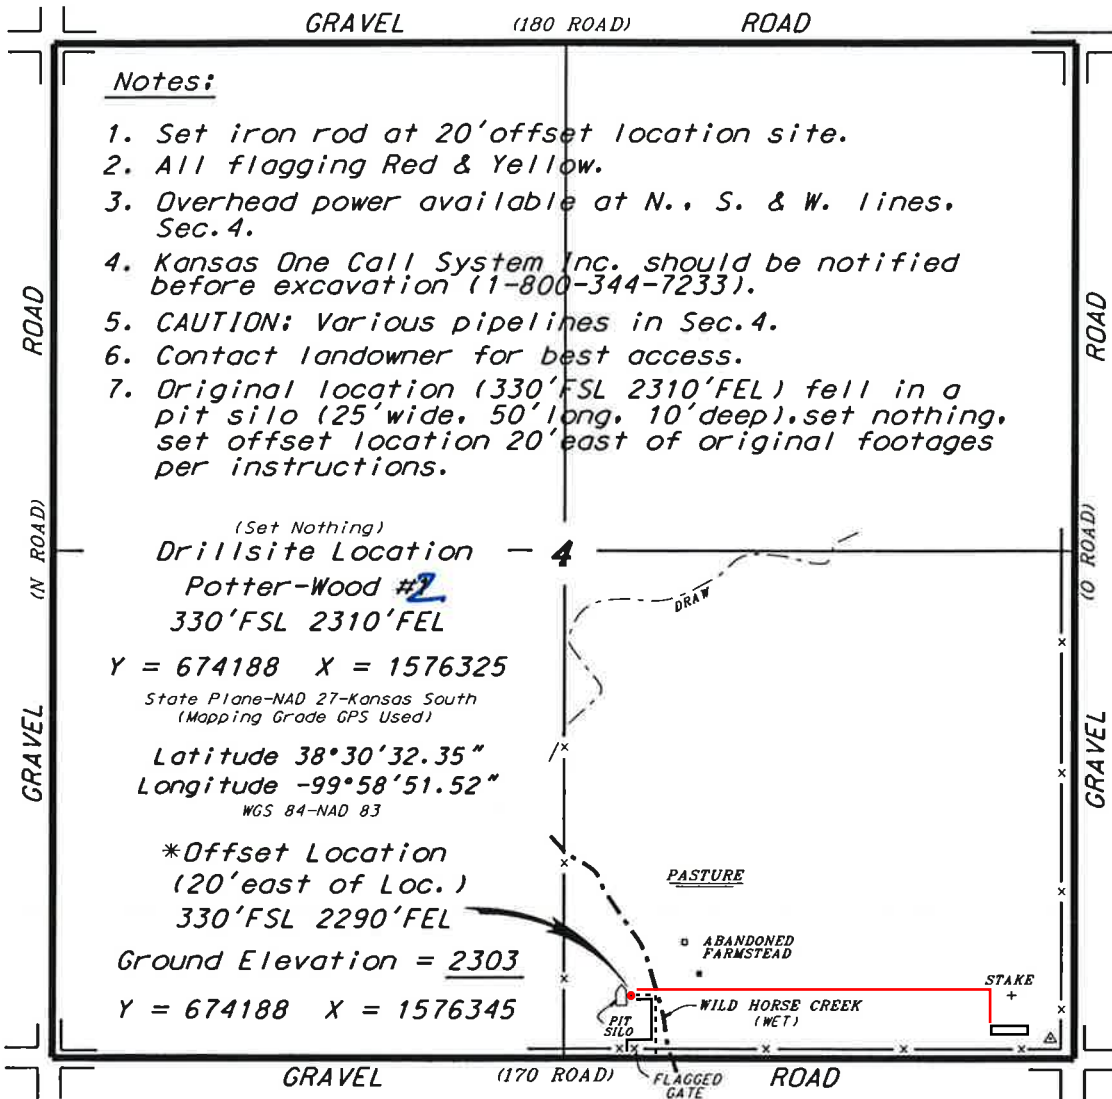 GRAVEL (180 ROAD) ROAD
Notes:
1. Set iron rod at 20'offset location site.
2. All flagging Red & Yellow.
3. Overhead power available at N., S. & W. lines,
Sec.4.
4. Kansas One Call System Inc. should be notified
before excavation (1-800-344-7233).
5. CAUTION: Various pipelines in Sec.4.
6. Contact landowner for best access.
7. Original location (330'FSL 2310'FEL) fell in a
pit silo (25'wide, 50'long, 10'deep),set nothing,
set offset location 20'east of original footages
per instructions.
ROAD
(N ROAD)
GRAVEL
ROAD
(O ROAD)
GRAVEL
(Set Nothing)
Drillsite Location
Potter-Wood #2
330'FSL 2310'FEL
4
DRAW
Y = 674188 X = 1576325
State Plane-NAD 27-Kansas South
(Mapping Grade GPS Used)
Latitude 38°30'32.35"
Longitude -99°58'51.52"
WGS 84-NAD 83
*Offset Location
(20'east of Loc.)
330'FSL 2290'FEL
Ground Elevation = 2303
Y = 674188 X = 1576345
PASTURE
ABANDONED
FARMSTEAD
STAKE
WILD HORSE CREEK
(WET)
PIT
SILO
FLAGGED
GATE
GRAVEL (170 ROAD) ROAD